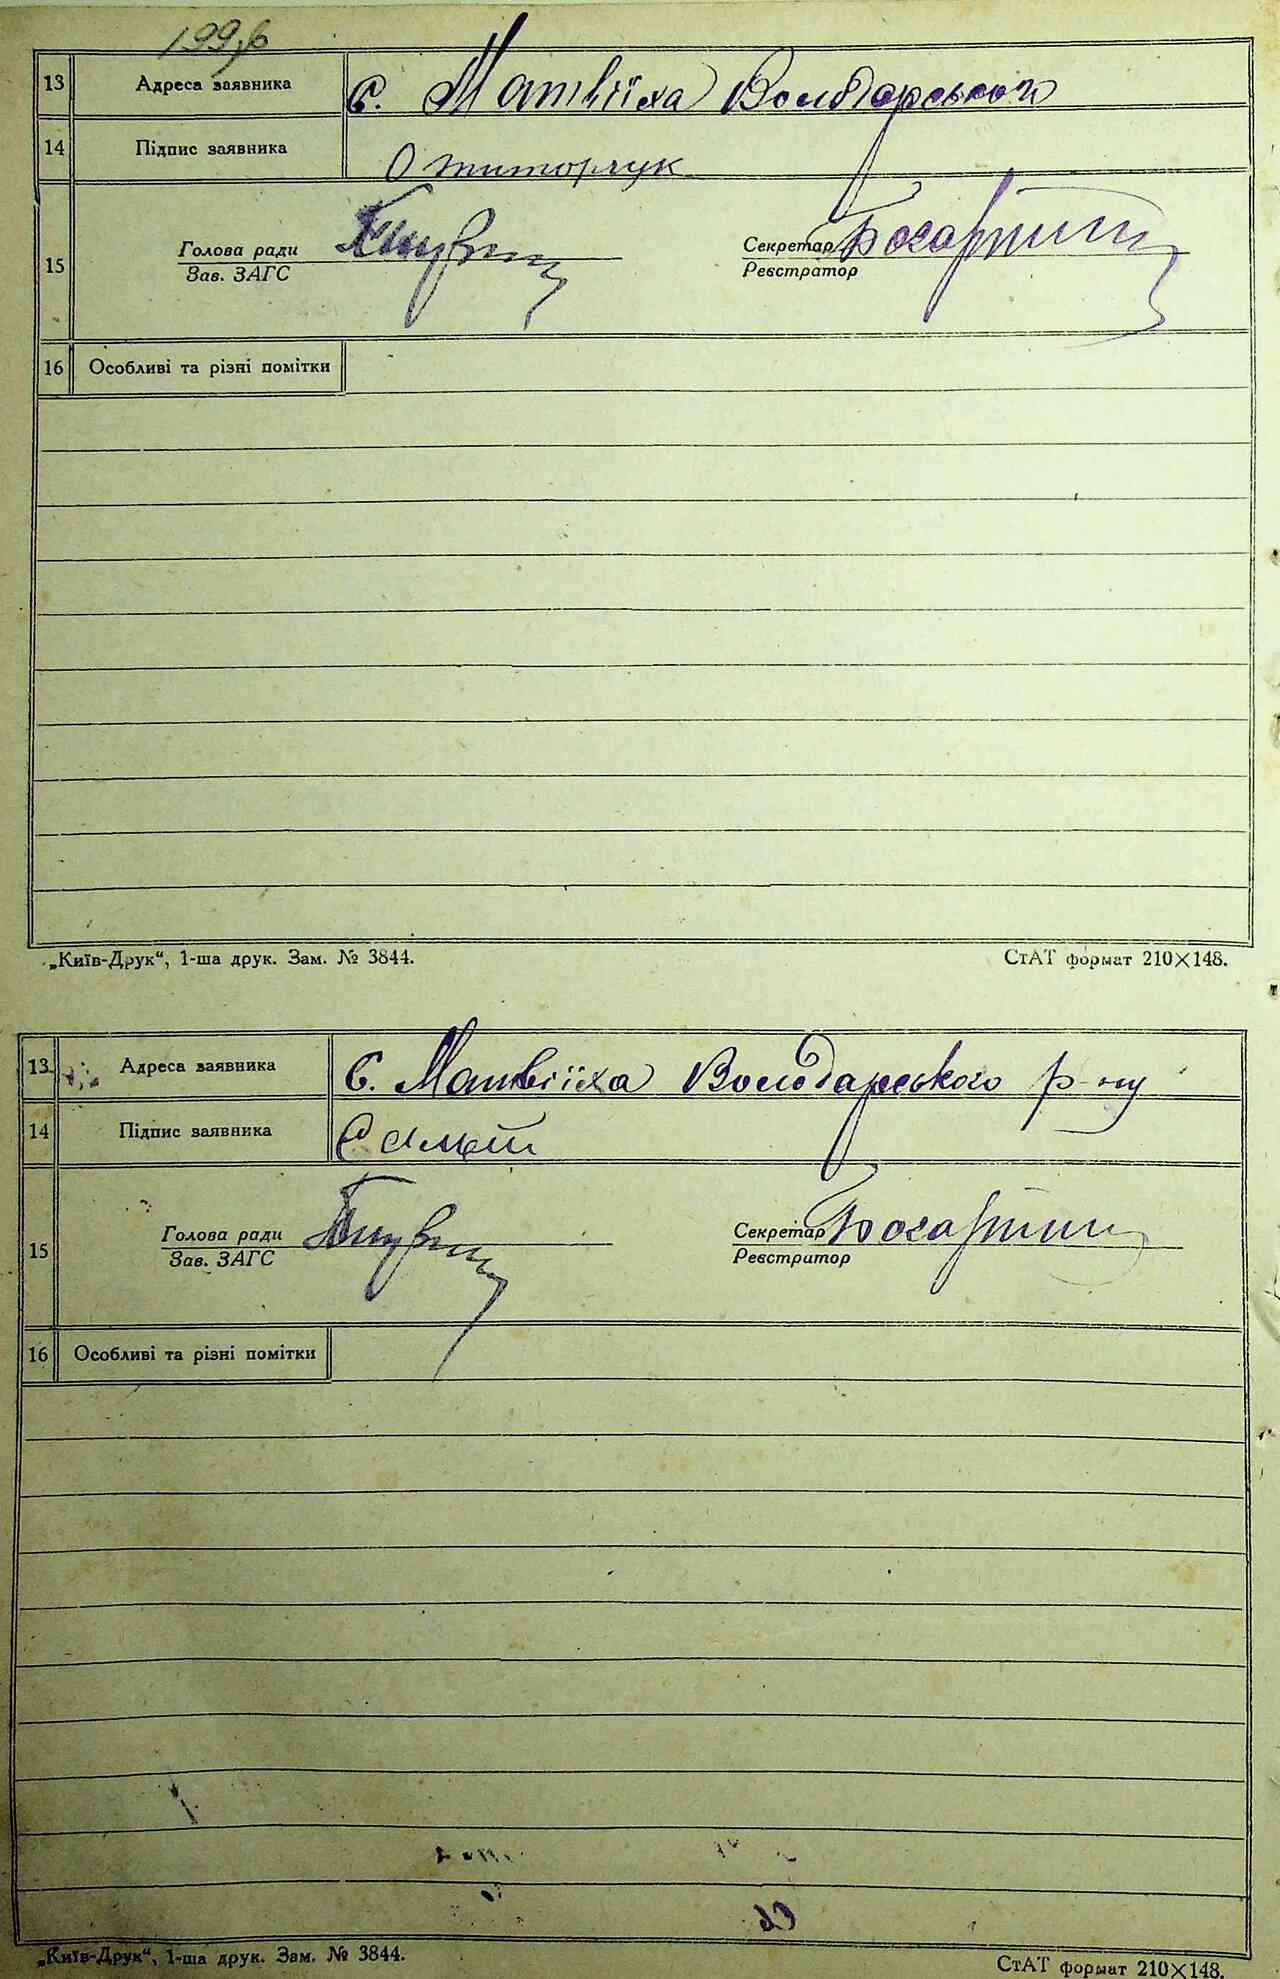 13 Адреса заявника с. Матвіїха Володарського
14 Підпис заявника О титорчук
15 Голова ради Секретар
Зав. ЗАГС Реєстратор
16 Особливі та різні помітки
„Київ-Друк“, 1-ша друк. Зам. № 3844. СтАТ формат 210×148.
13 Адреса заявника с. Матвіїха Володарського р-ну
14 Підпис заявника
15 Голова ради Секретар
Зав. ЗАГС Реєстратор
16 Особливі та різні помітки
„Київ-Друк“, 1-ша друк. Зам. № 3844. СтАТ формат 210×148.